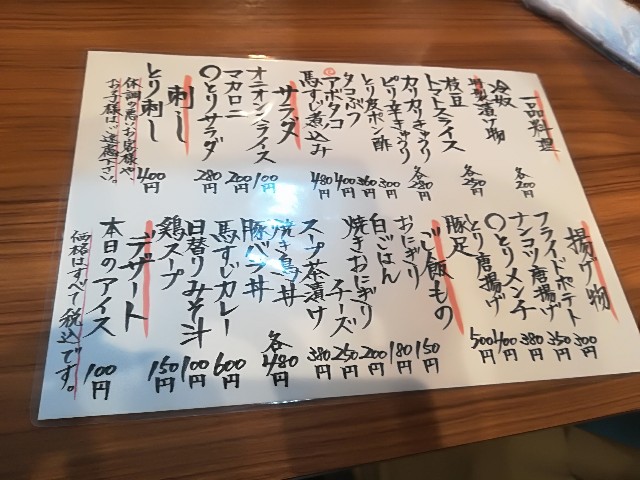 一品料理
冷奴
漬け物
各200円
枝豆
トマトスライス
各250円
カリカリきゅうり
ピリ辛きゅうり
各280円
とり皮ポン酢 300円
タコぶつ 360円
アボタコ 400円
馬すじ煮込み 480円
サラダ
オニオンスライス 100円
マカロニ 200円
とりサラダ 280円
刺し
とり刺し 400円
体調の悪いお客様や
お子様はご遠慮下さい。
揚げ物
フライドポテト 300円
ナンコツ唐揚げ 350円
とりメンチ 380円
とり唐揚げ 400円
豚足 500円
ご飯もの
おにぎり 150円
白ごはん 180円
焼きおにぎり 200円
チーズ 250円
スープ茶漬け 380円
焼き鳥丼
豚バラ丼
各480円
馬すじカレー 600円
日替りみそ汁 100円
鶏スープ 150円
デザート
本日のアイス 100円
価格はすべて税込です。